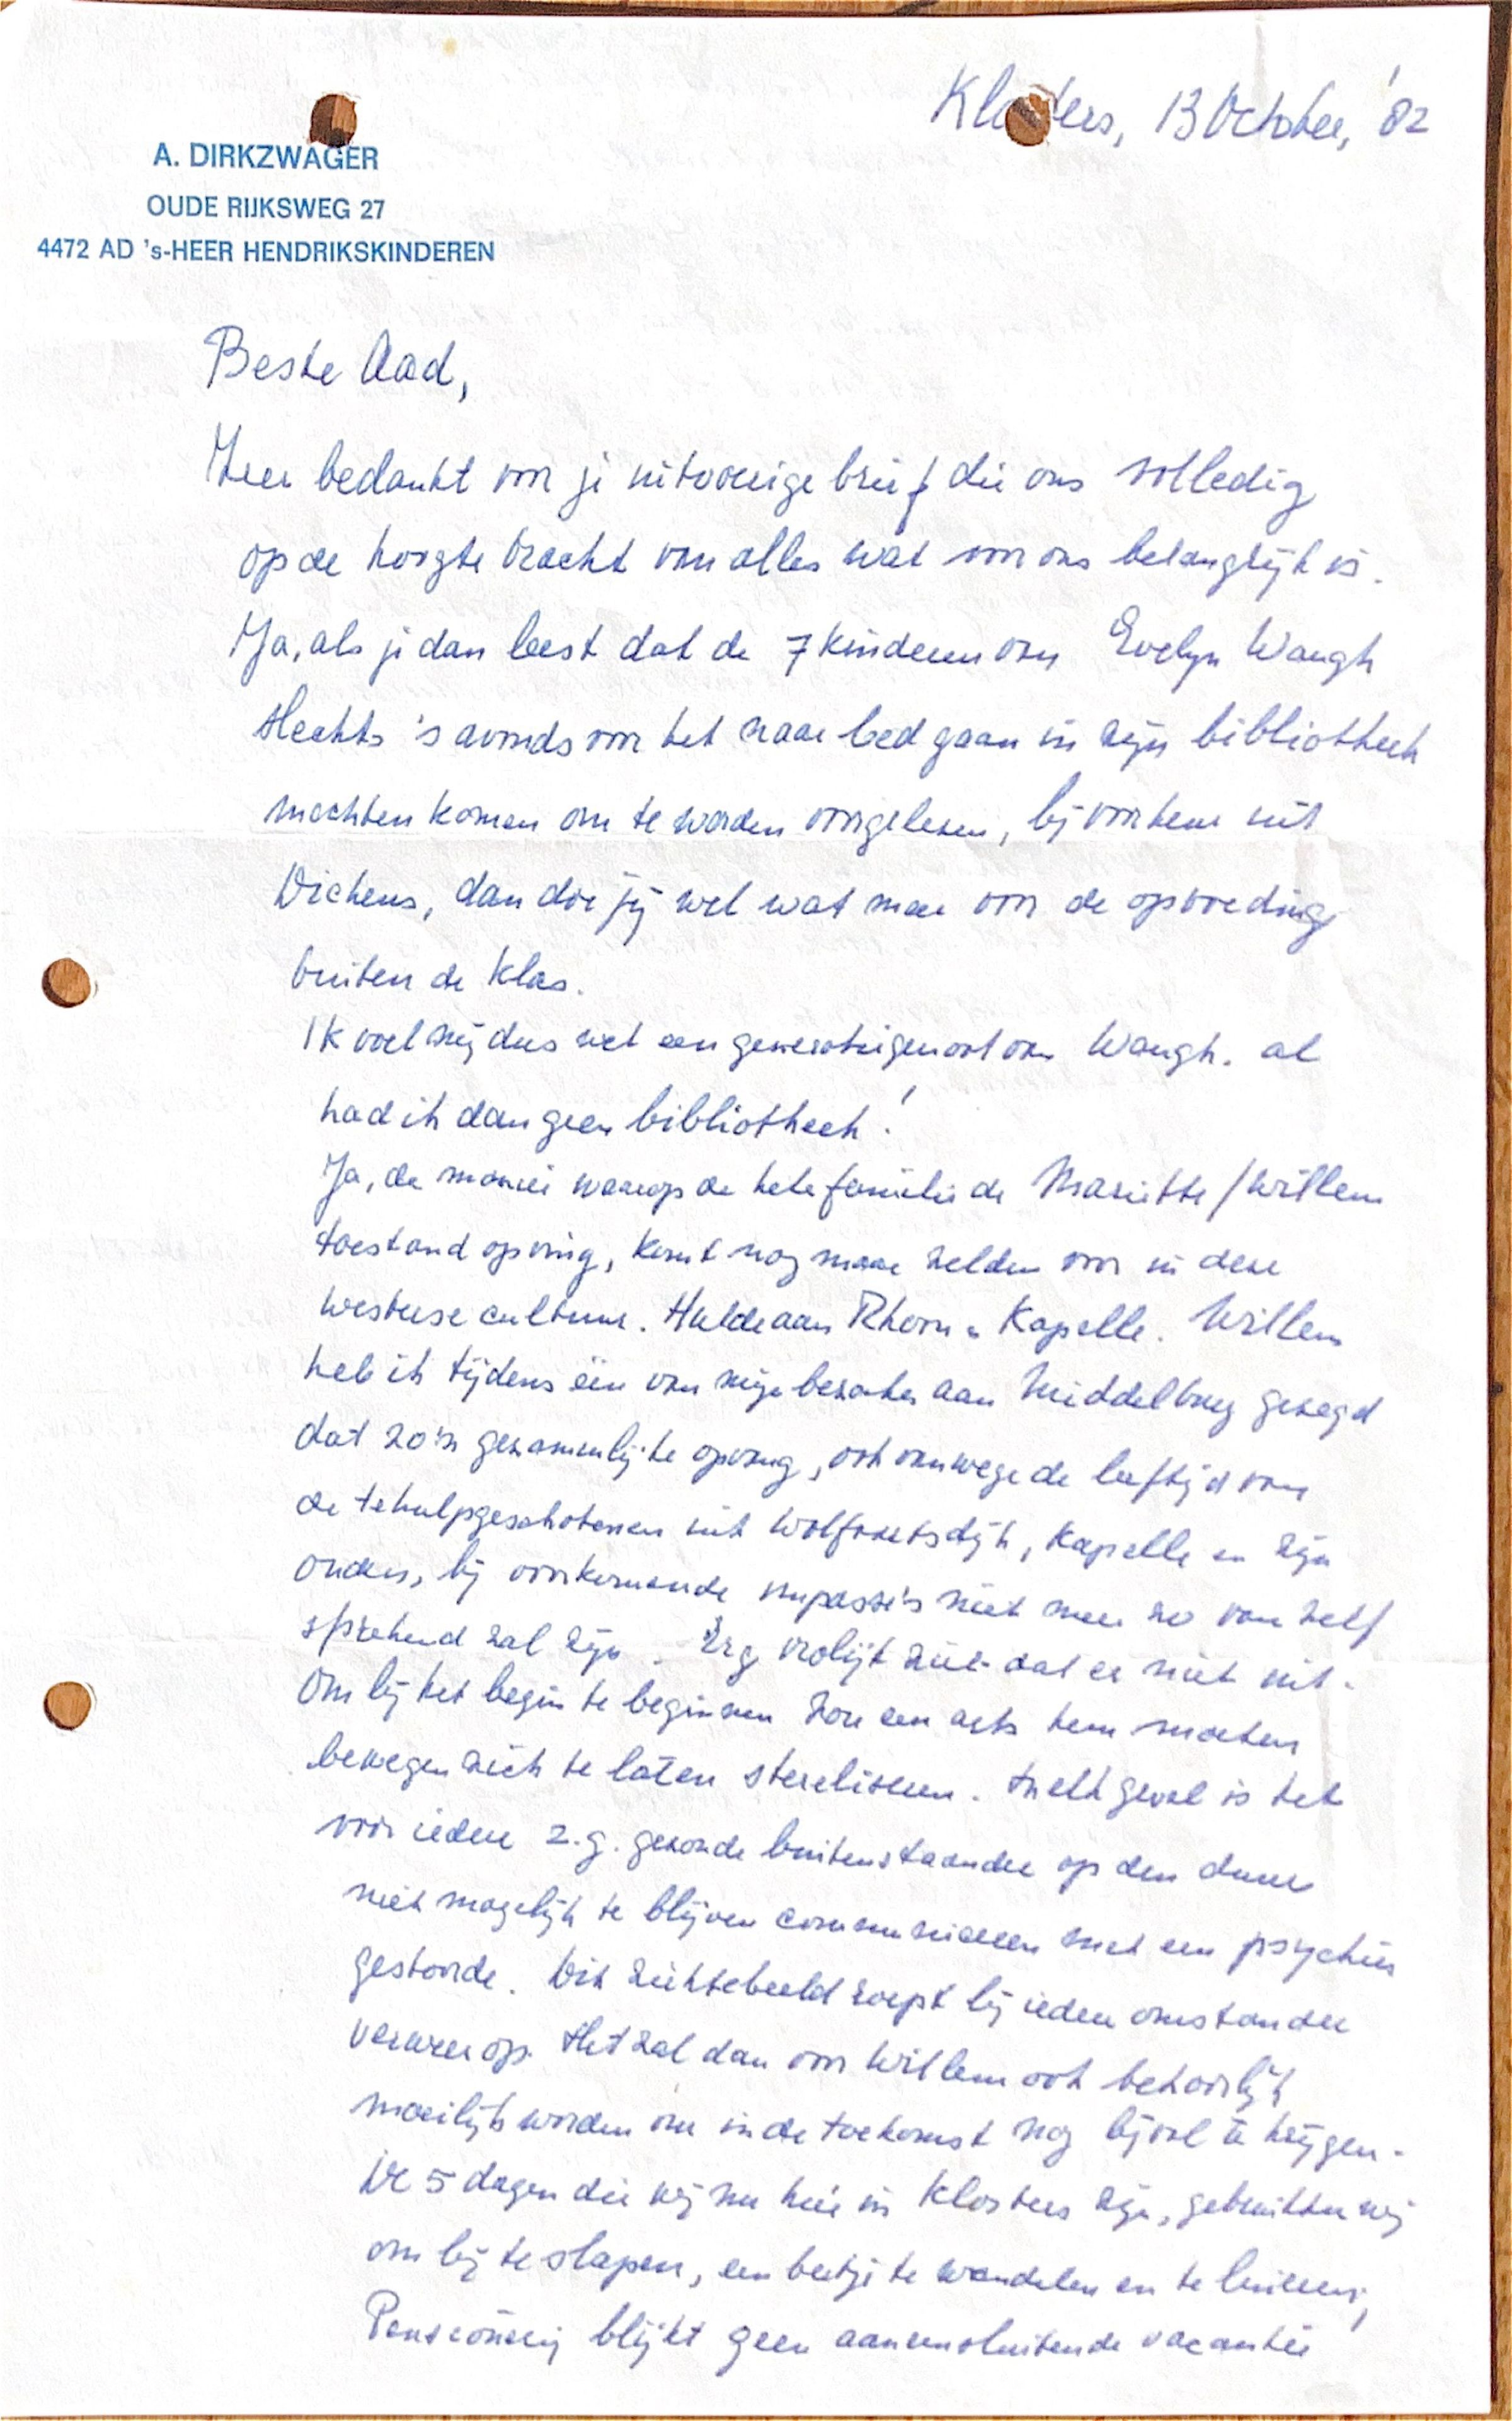 Klosters, 13 October, '82
A. DIRKZWAGER
OUDE RIJKSWEG 27
4472 AD 's-HEER HENDRIKSKINDEREN
Beste Aad,
Zeer bedankt voor je uitvoerige brief die ons volledig
op de hoogte bracht van alles wat voor ons belangrijk is.
Ja, als je dan leest dat de 7 kinderen van Evelyn Waugh
slechts 's avonds voor het naar bed gaan in zijn bibliotheek
mochten komen om te worden voorgelezen, bij voorkeur uit
Dickens, dan doe jij wel wat meer voor de opvoeding
buiten de klas.
Ik voel mij dus wel een geestverwant van Waugh. al
had ik dan geen bibliotheek!
Ja, de manier waarop de hele familie de Mariette/Willem
toestand opving, komt nog maar zelden voor in deze
westerse cultuur. Hulde aan Rhoon en Kapelle. Willem
heb ik tijdens één van mijn bezoeken aan Middelburg gezegd
dat zo'n gezamenlijke opvang, ook vanwege de leeftijd van
de tehulpgeschotenen uit Wolfaartsdijk, Kapelle en zijn
ouders, bij voorkomende impasse's niet meer zo van zelf
sprekend zal zijn. Erg vrolijk ziet dat er niet uit.
Om bij het begin te beginnen zou een arts hem moeten
bewegen zich te laten steriliseren. In elk geval is het
voor iedere z.g. gezonde buitenstaander op den duur
niet mogelijk te blijven communiceren met een psychies
gestoorde. Dit ziektebeeld roept bij iedere omstander
verweer op. Het zal dan voor Willem ook behoorlijk
moeilijk worden om in de toekomst nog bijval te krijgen.
De 5 dagen die wij nu hier in Klosters zijn, gebruikten wij
om bij te slapen, een beetje te wandelen en te luieren;
Pensionering blijkt geen aaneensluitende vacantie